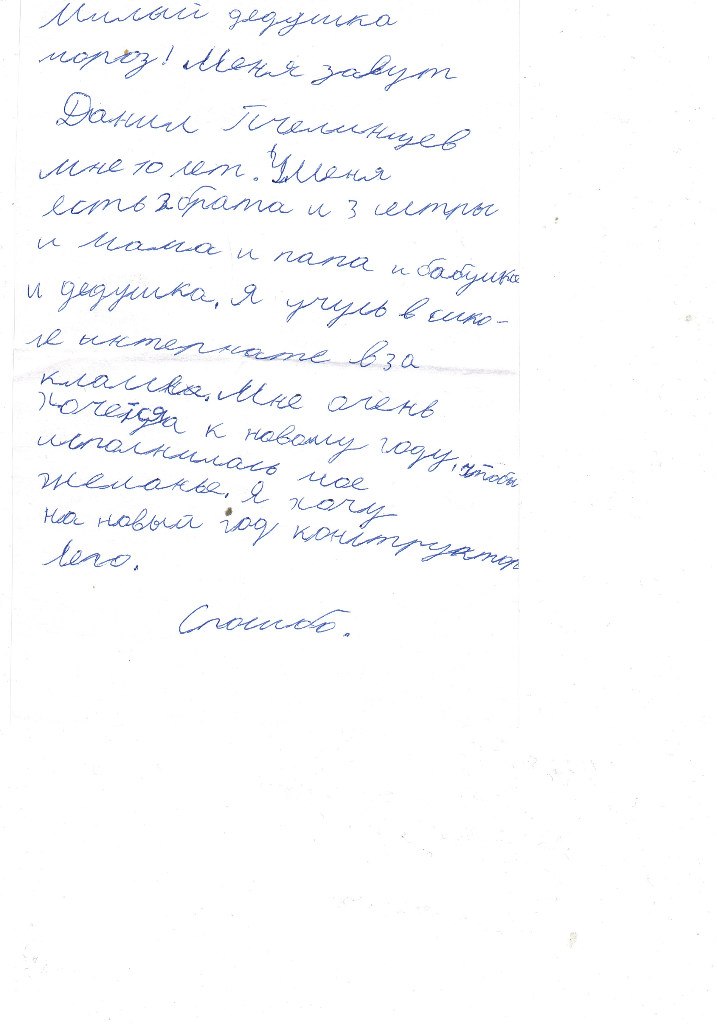 Милый дедушка
мороз! Меня завут
Данил Пчелинцев
мне 10 лет. У Меня
есть 2 брата и 3 сестры
и мама и папа и бабушка
и дедушка. Я учусь в шко-
ле интернате в 3а
класса. Мне очень
хочется к новому году, чтобы
исполнилась мое
желанье. Я хочу
на новый год конструктор
лего.
Спосибо.